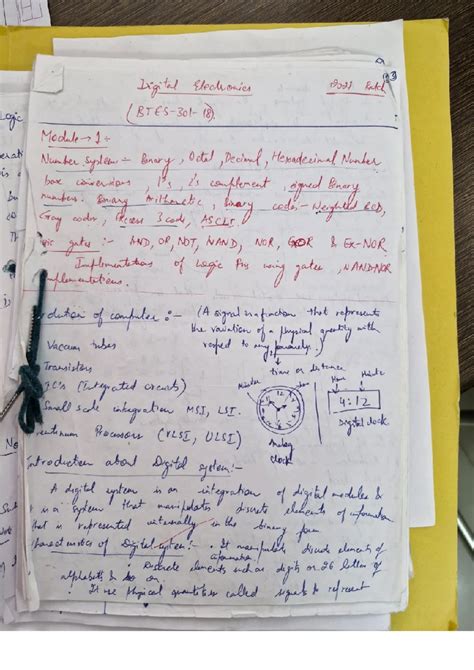 Digital Electronics
(BTES-301-18)
Module → 1 :-
Number System :- Binary, Octal, Decimal, Hexadecimal Number
base conversions, 1's, 2's complement, signed Binary
numbers. Binary Arithmetic, Binary codes:- Weighted BCD,
Gray codes, Excess 3 code, ASCII
gates :- AND, OR, NOT, NAND, NOR, & Ex-NOR
Implementations of Logic using gates, NAND-NOR
implementations.
of computer :- (A signal is a function that represents
the variation of a physical quantity with
respect to any
time or distance
Vacuum tubes
Transistors
IC's (Integrated circuits)
Small scale integration MSI, LSI.
Processors (VLSI, ULSI)
Hour Minute
4:12
Digital clock
12
Analog
clock
Introduction about Digital system:-
A digital system is an integration of digital modules &
is a system that manipulates discrete elements of information
that is represented internally in the binary form
characteristics of Digital system:- It manipulates discrete elements of
information
Discrete elements such as digits or 26 letters of
alphabets & so on
It use physical quantities called signals to represent